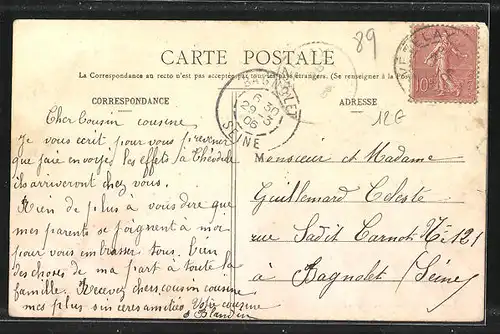 89
CARTE POSTALE
La Correspondance au recto n'est pas acceptée par tous les pays étrangers. (Se renseigner à la Poste
CORRESPONDANCE
ADRESSE
12G
BAGNOLET
6 30
29-5
06
SEINE
10c
Cher Cousin cousine
Je vous ecrit pour vous prevenir
que j'aie envoyé les effets a Théodule
ils arriveront chez vous.
Rien de plus à vous dire que
mes parents se joignent à moi
pour vous embrasser tous. bien
des choses de ma part à toute la
famille. Recevez chers cousin cousine
mes plus sinceres amitiés Votre cousine
Blandin
Monsieur et Madame
Guillemard Celeste
rue Sadit Carnot N: 121
à Bagnolet (Seine)